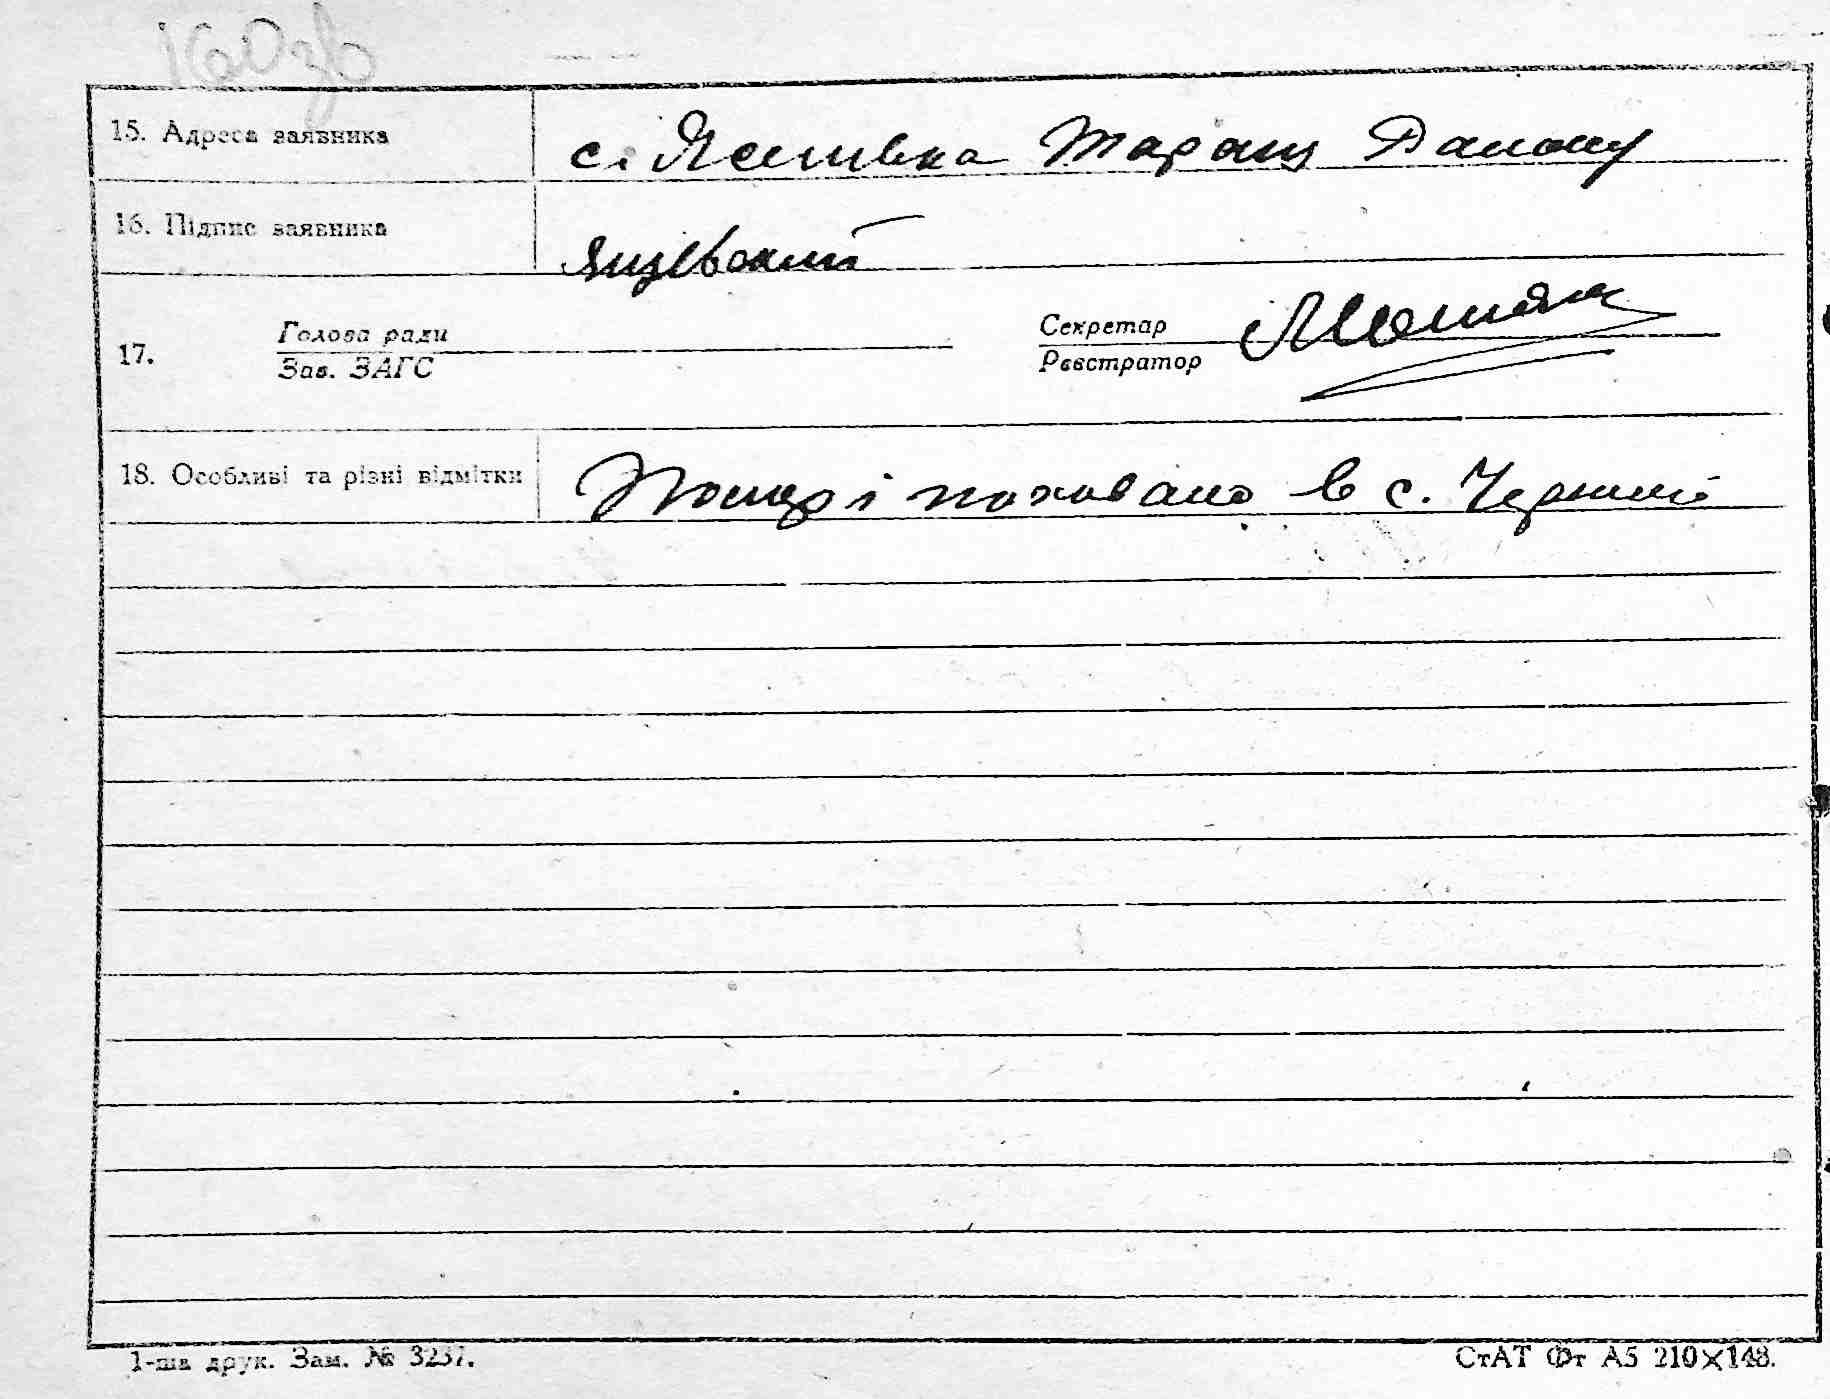 160зв
15. Адреса заявника
с. Яснівка Таращ Району
16. Підпис заявника
Яцевский
17.
Голова ради
Зав. ЗАГС
Секретар
Реєстратор
18. Особливі та різні відмітки
Помер і поховано в с. Чернині
1-ша друк. Зам. № 3237.
СтАТ Фт А5 210×148.